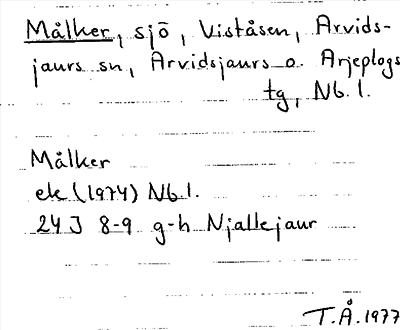 Målker, sjö, Viståsen, Arvids-
jaurs sn, Arvidsjaurs o. Arjeplogs
tg, Nb. l.
Målker
ek (1974) Nb l.
24 J 8-9 g-h Njallejaur
T.Å. 1977